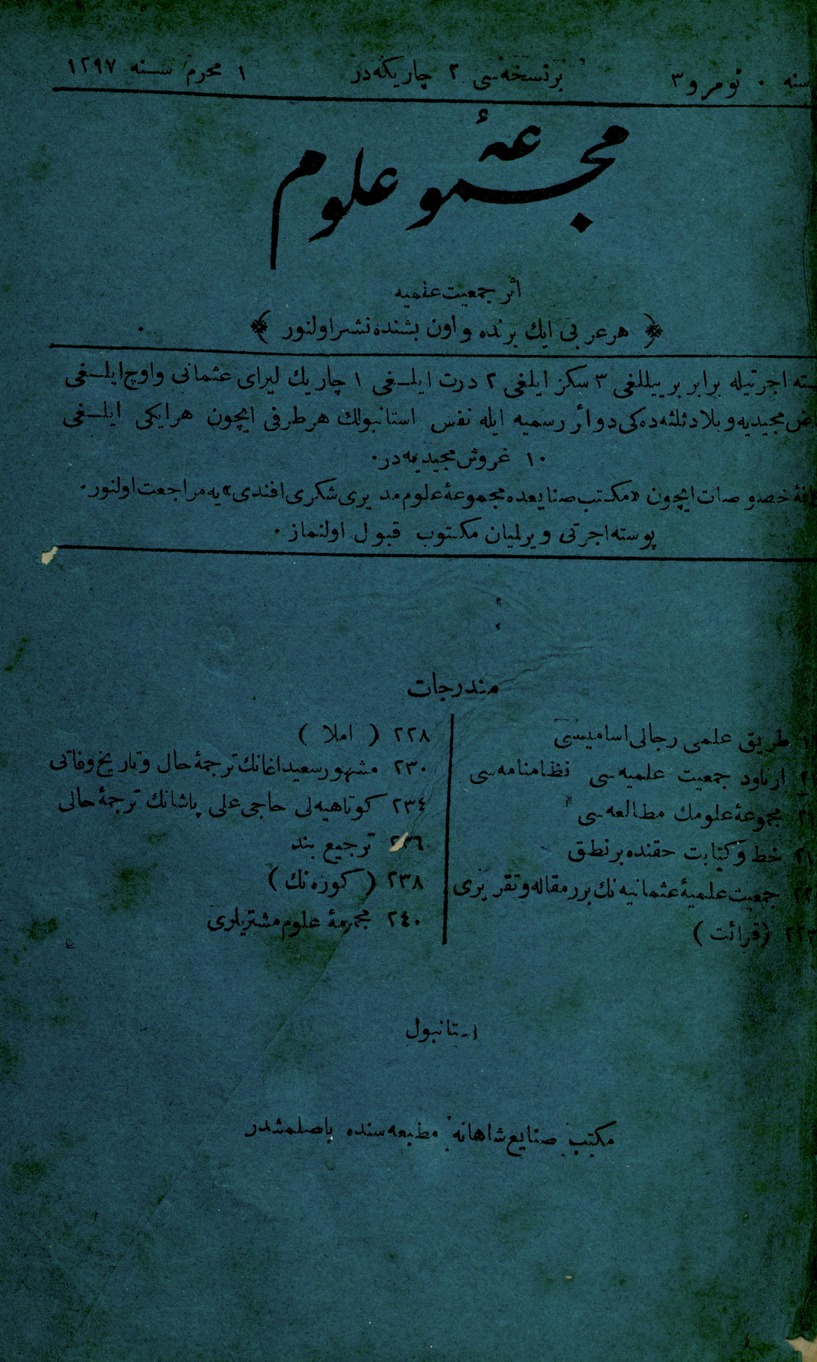 سنه ٠ نومرو ٣
برنسخه‌سی ٢ چاریکه‌در
١ محرم سنه ١٢٩٧
مجموعهٔ علوم
اثر جمعیت علمیه
﴿ هر عربی ایك برنده و اون بشنده نشر اولنور ﴾
اجرتیله برابر بر ییللغی ٣ سکز ایلغی ٢ درت ایلغی ١ چاریك لیرای عثمانی و اوچ ایلغی
مجیدیه و بلاد ثلثه‌ده‌کی دوائر رسمیه ایله نفس استانبولك هر طرفی ایچون هر ایکی ایلغی
١٠ غروش مجیدیه‌در.
خصوصات ایچون «مکتب صنایعده مجموعهٔ علوم مدیری شکری افندی»یه مراجعت اولنور.
پوسته اجرتی ویرلمیان مکتوب قبول اولنماز.
مندرجات
طریق علمی رجالی اسامیسی
ارناود جمعیت علمیه‌سی نظامنامه‌سی
مجموعهٔ علومك مطالعه‌سی
خط و کتابت حقنده بر نطق
جمعیت علمیهٔ عثمانیه‌نك بر مقاله و تقریری
٢٢٣ (قرائت)
٢٢٨ ( املا )
٢٣٠ مشهور سعید اغانك ترجمهٔ حال و تاریخ وفاتی
٢٣٤ کوتاهیه‌لی حاجی علی پاشانك ترجمهٔ حالی
٢٣٦ ترجیع بند
٢٣٨ ( کوزه‌نك )
٢٤٠ مجموعهٔ علوم مشتریلری
استانبول
مکتب صنایع شاهانه مطبعه‌سنده باصلمشدر